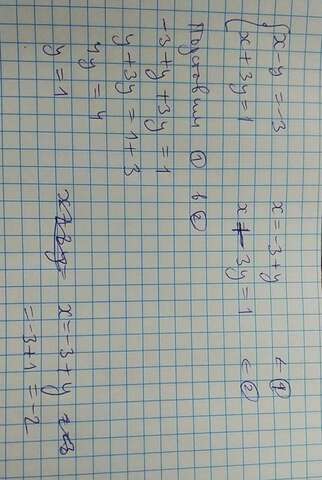 { x-y = -3 x = -3+y ← ①
x+3y = 1 x + 3y = 1 ← ②
Подставим ① в ②
-3+y+3y = 1
y+3y = 1+3
4y = 4
y = 1
x = -3+y
= -3+1 = -2